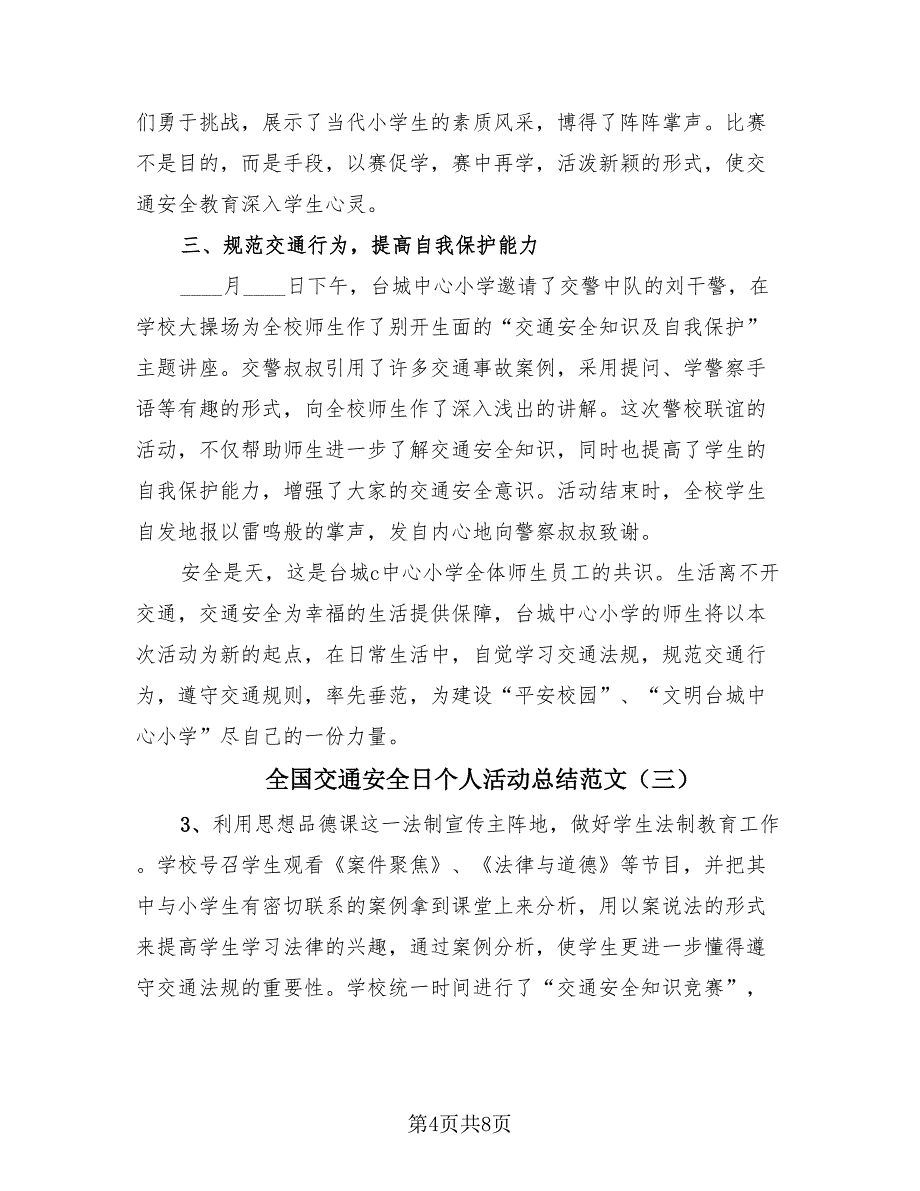 们勇于挑战，展示了当代小学生的素质风采，博得了阵阵掌声。比赛
不是目的，而是手段，以赛促学，赛中再学，活泼新颖的形式，使交
通安全教育深入学生心灵。
三、规范交通行为，提高自我保护能力
____月____日下午，台城中心小学邀请了交警中队的刘干警，在
学校大操场为全校师生作了别开生面的“交通安全知识及自我保护”
主题讲座。交警叔叔引用了许多交通事故案例，采用提问、学警察手
语等有趣的形式，向全校师生作了深入浅出的讲解。这次警校联谊的
活动，不仅帮助师生进一步了解交通安全知识，同时也提高了学生的
自我保护能力，增强了大家的交通安全意识。活动结束时，全校学生
自发地报以雷鸣般的掌声，发自内心地向警察叔叔致谢。
安全是天，这是台城c中心小学全体师生员工的共识。生活离不开
交通，交通安全为幸福的生活提供保障，台城中心小学的师生将以本
次活动为新的起点，在日常生活中，自觉学习交通法规，规范交通行
为，遵守交通规则，率先垂范，为建设“平安校园”、“文明台城中
心小学”尽自己的一份力量。
全国交通安全日个人活动总结范文（三）
3、利用思想品德课这一法制宣传主阵地，做好学生法制教育工作
。学校号召学生观看《案件聚焦》、《法律与道德》等节目，并把其
中与小学生有密切联系的案例拿到课堂上来分析，用以案说法的形式
来提高学生学习法律的兴趣，通过案例分析，使学生更进一步懂得遵
守交通法规的重要性。学校统一时间进行了“交通安全知识竞赛”，
第4页共8页